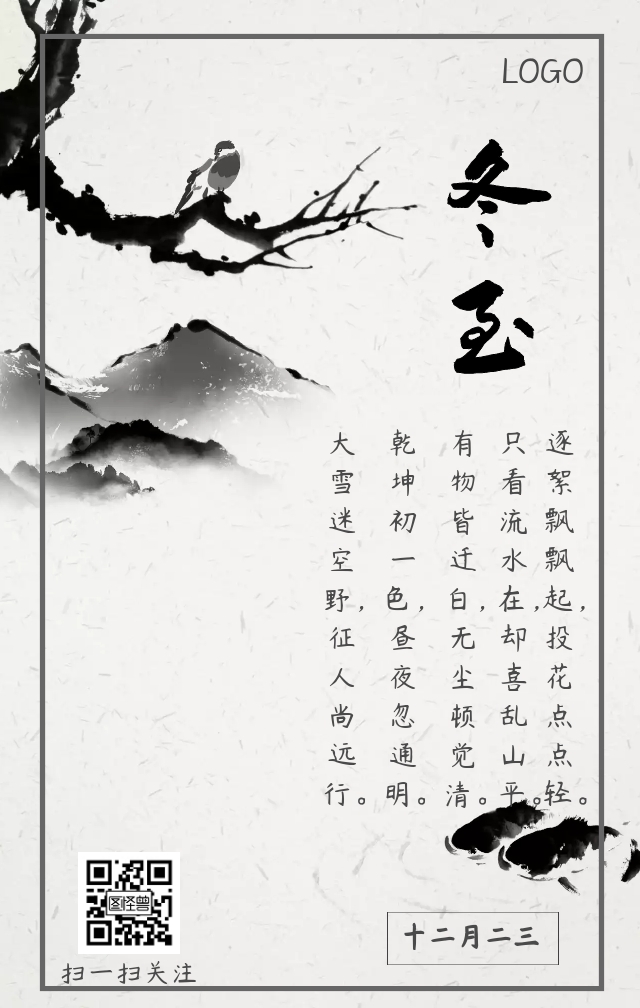 LOGO
冬至
大雪迷空野,征人尚远行。
乾坤初一色,昼夜忽通明。
有物皆迁白,无尘顿觉清。
只看流水在,却喜乱山平。
逐絮飘飘起,投花点点轻。
图怪兽
扫一扫关注
十二月二三